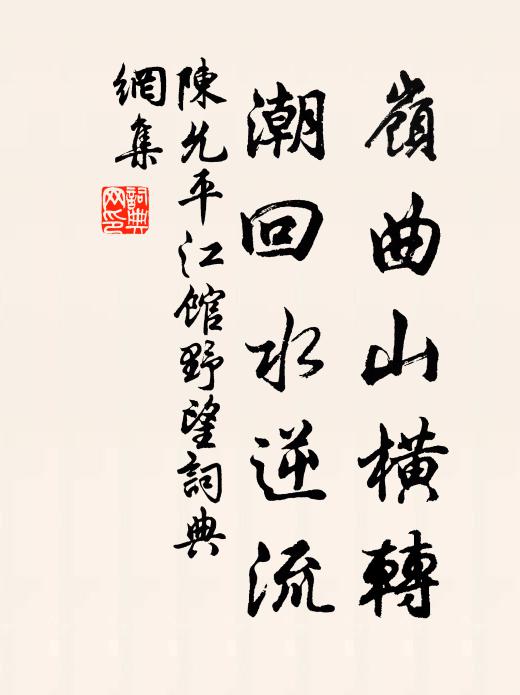 嶺曲山橫轉
潮回水逆流
陳允平江館野望詞典
網集
詞典
网印